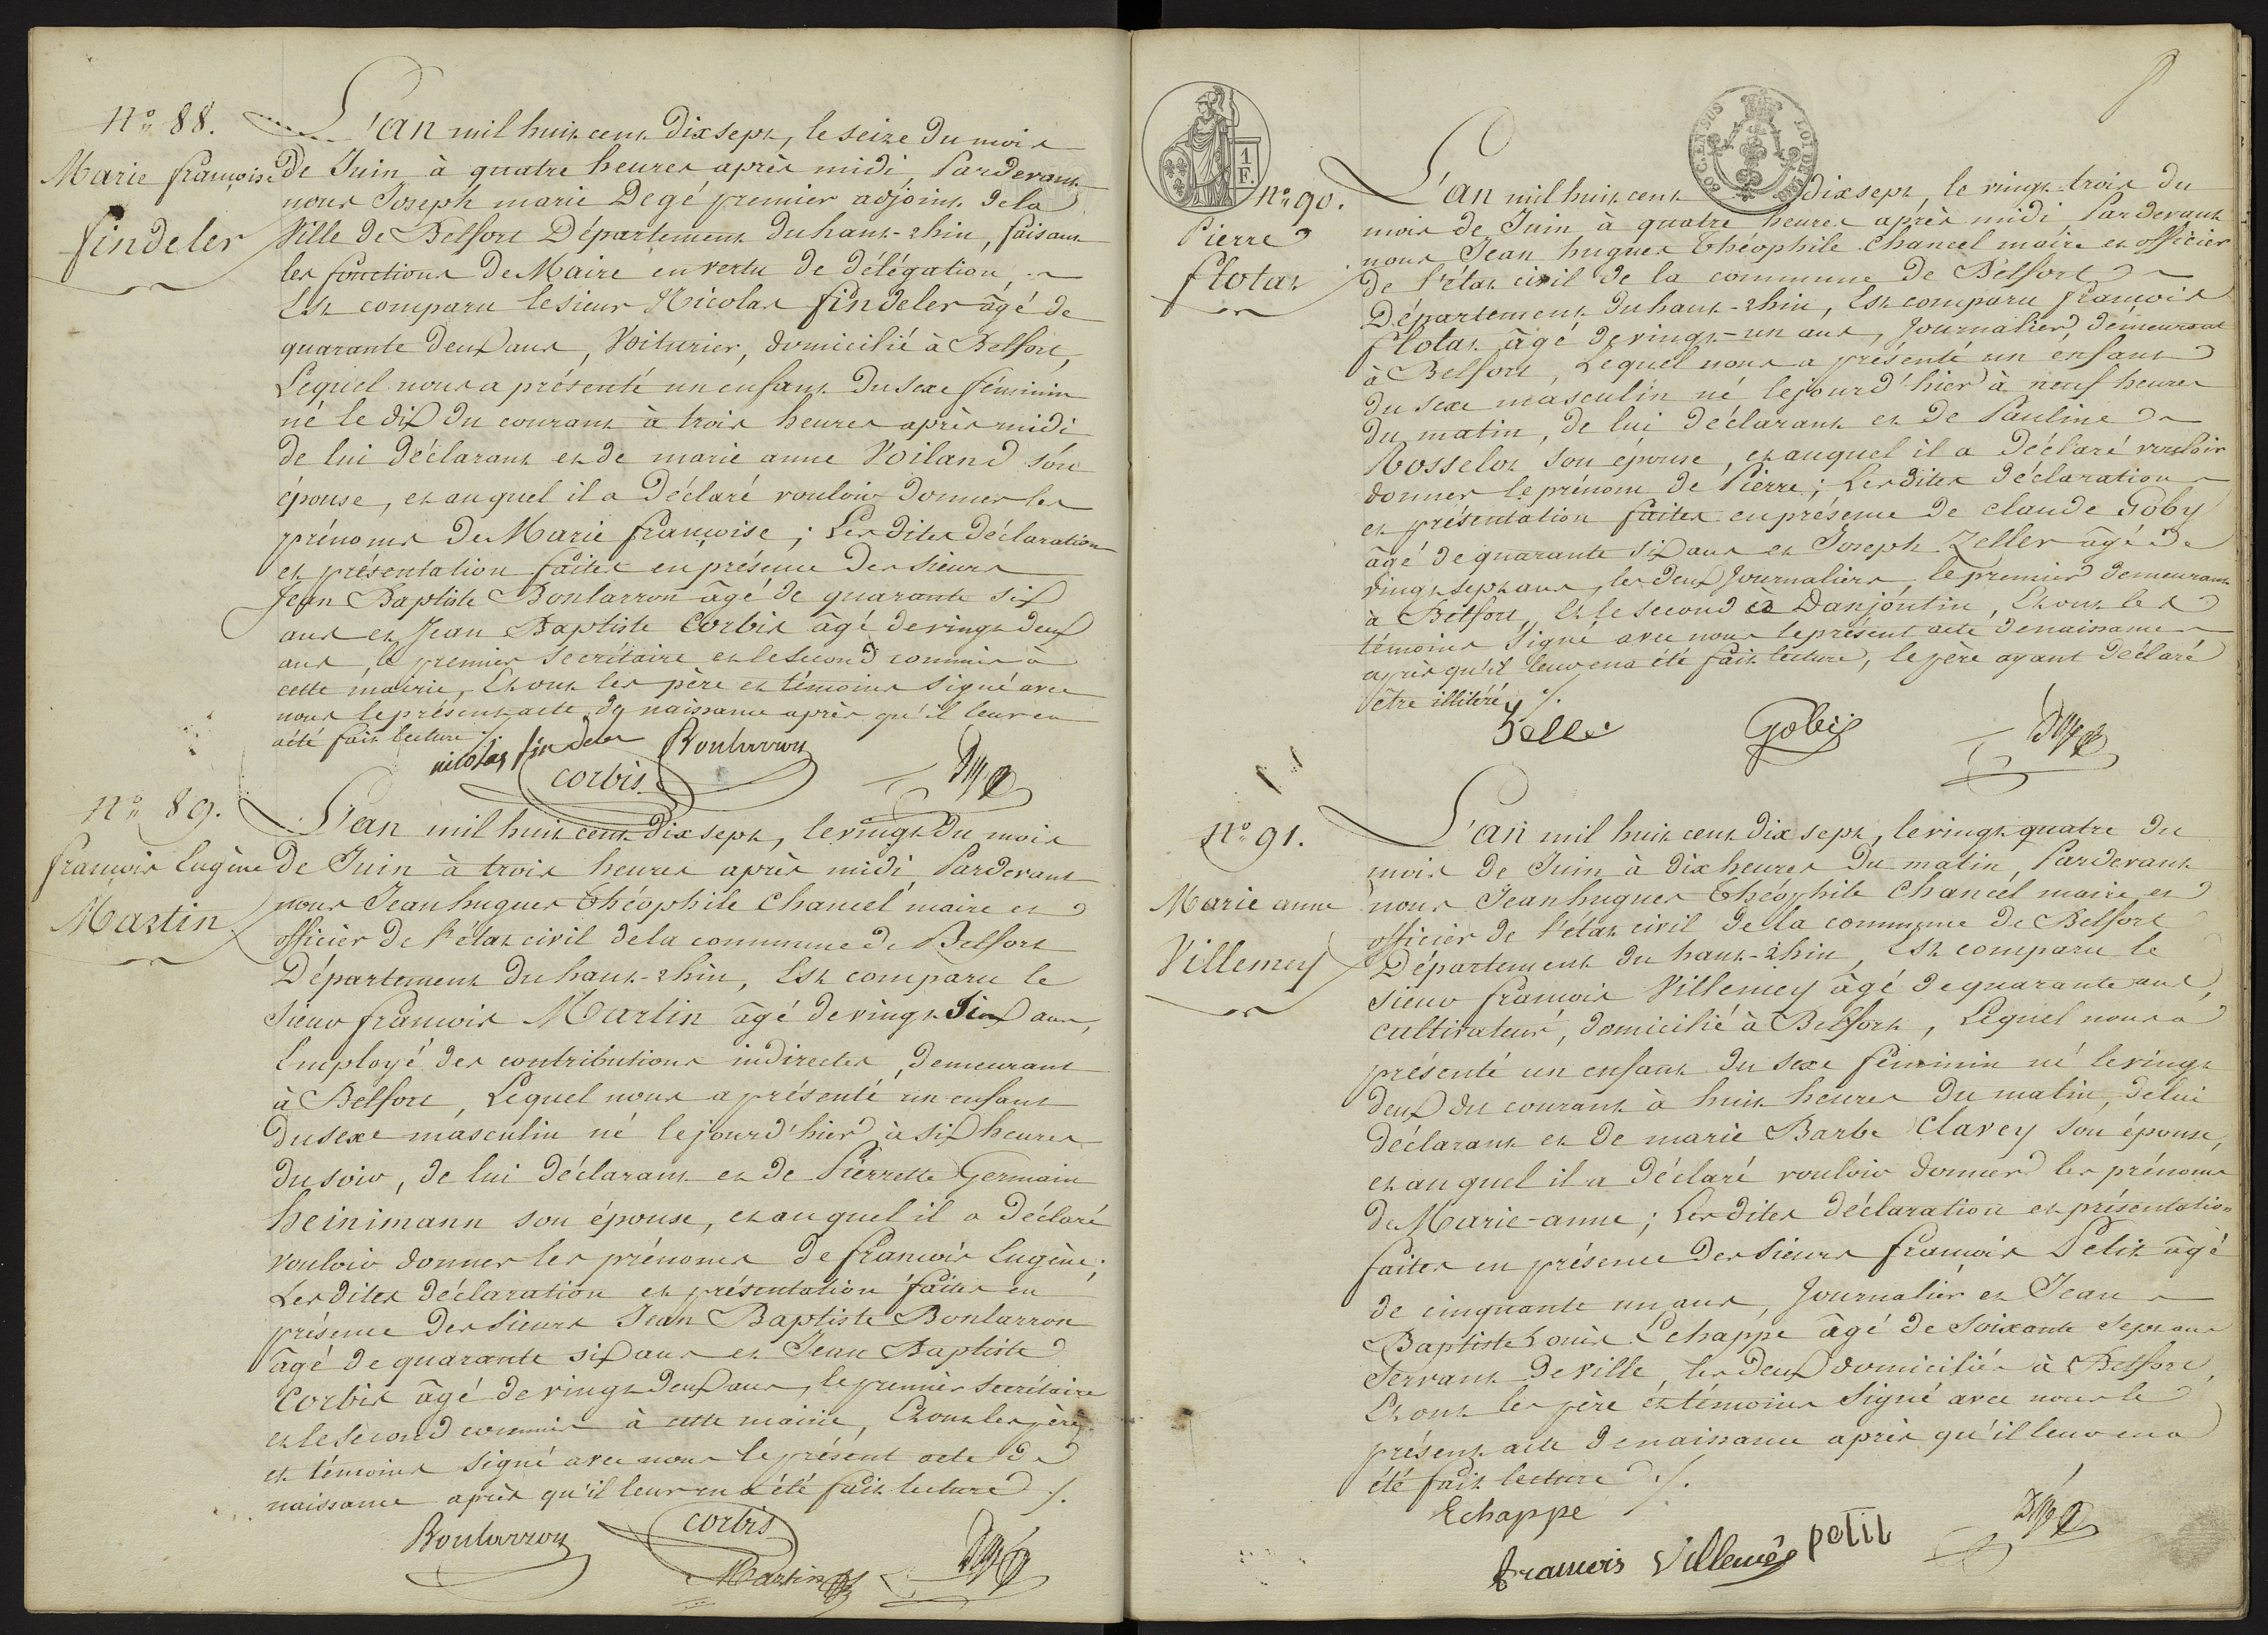 N.º 88.
Marie françoise
findeler
L'an mil huit cent dix sept, le seize du mois
de Juin à quatre heures après midi, Pardevant
nous Joseph marie Degé premier adjoint de la
Ville de Belfort Département du haut-rhin, faisant
les fonctions de Maire en vertu de délégation,
Est comparu le sieur Nicolas findeler âgé de
quarante deux ans, Voiturier, domicilié à Belfort,
Lequel nous a présenté un enfant du sexe féminin
né le dix du courant à trois heures après midi
de lui déclarant et de marie anne Voiland son
épouse, et auquel il a déclaré vouloir donner les
prénoms de Marie françoise; Les dites déclaration
et présentation faites en présence des sieurs
Jean Baptiste Bonlarron âgé de quarante six
ans et Jean Baptiste Corbis âgé de vingt deux
ans, le premier Secrétaire et le second commis à
cette mairie, Et ont les père et témoins signé avec
nous le présent acte de naissance après qu'il leur en
a été fait lecture ./.
nicolas findeler Bonlarron
corbis
N.º 89.
françois Eugène
Martin
L'an mil huit cent dix sept, le vingt du mois
de Juin à trois heures après midi, Pardevant
nous Jean hugues Théophile Chancel maire et
officier de l'état civil de la commune de Belfort
Département du haut-rhin, Est comparu le
sieur françois Martin âgé de vingt six ans,
Employé des contributions indirectes, demeurant
à Belfort, Lequel nous a présenté un enfant
du sexe masculin né le jour d'hier à six heures
du soir, de lui déclarant et de Pierrette Germain
heinimann son épouse, et auquel il a déclaré
vouloir donner les prénoms de françois Eugène;
Les dites déclaration et présentation faites en
présence des sieurs Jean Baptiste Bonlarron
âgé de quarante six ans et Jean Baptiste
Corbis âgé de vingt deux ans, le premier secrétaire
et le second commis à cette mairie, Et ont les père
et témoins signé avec nous le présent acte de
naissance après qu'il leur en a été fait lecture ./.
Bonlarron corbis
Martin
1 F.
50 C. EN SUS LOI DE 1816
N.º 90.
Pierre
flotat
L'an mil huit cent dix sept, le vingt-trois du
mois de Juin à quatre heures après midi Pardevant
nous Jean hugues Théophile Chancel maire et officier
de l'état civil de la commune de Belfort
Département du haut-rhin, Est comparu françois
flotat âgé de vingt-un ans, Journalier, demeurant
à Belfort, Lequel nous a présenté un enfant
du sexe masculin né le jour d'hier à neuf heures
du matin, de lui déclarant et de Pauline
Rosselot son épouse, et auquel il a déclaré vouloir
donner le prénom de Pierre; Les dites déclaration
et présentation faites en présence de claude Goby
âgé de quarante six ans et Joseph Zeller âgé de
vingt sept ans, les deux Journaliers, le premier demeurant
à Belfort, et le second à Danjoutin, Et ont les
témoins signé avec nous le présent acte de naissance
après qu'il leur en a été fait lecture, le père ayant déclaré
être illitéré ./.
Zeller Gobij
N.º 91.
Marie anne
Villemey
L'an mil huit cent dix sept, le vingt quatre du
mois de Juin à dix heures du matin, Pardevant
nous Jean hugues Théophile Chancel maire et
officier de l'état civil de la commune de Belfort
Département du haut-rhin, Est comparu le
sieur françois Villemey âgé de quarante ans,
cultivateur, domicilié à Belfort, Lequel nous a
présenté un enfant du sexe féminin né le vingt
deux du courant à huit heures du matin, de lui
déclarant et de marie Barbe Clavey son épouse,
et auquel il a déclaré vouloir donner les prénoms
de Marie-anne; Les dites déclaration et présentation
faites en présence des sieurs françois Petit âgé
de cinquante un ans, Journalier et Jean
Baptiste Louis Echappe âgé de soixante sept ans
Servant de ville, les deux domiciliés à Belfort,
Et ont les père et témoins signé avec nous le
présent acte de naissance après qu'il leur en a
été fait lecture ./.
Echappe
francois Villemey petit